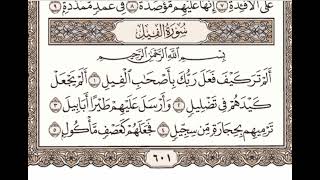 عَلَى الْأَفْـِٔدَةِ ٧ إِنَّهَا عَلَيْهِم مُّؤْصَدَةٌ ٨ فِي عَمَدٍ مُّمَدَّدَةٍ ٩
سُورَةُ الْفِيلِ
بِسْمِ اللَّهِ الرَّحْمَٰنِ الرَّحِيمِ
أَلَمْ تَرَ كَيْفَ فَعَلَ رَبُّكَ بِأَصْحَٰبِ الْفِيلِ ١ أَلَمْ يَجْعَلْ
كَيْدَهُمْ فِي تَضْلِيلٍ ٢ وَأَرْسَلَ عَلَيْهِمْ طَيْرًا أَبَابِيلَ ٣
تَرْمِيهِم بِحِجَارَةٍ مِّن سِجِّيلٍ ٤ فَجَعَلَهُمْ كَعَصْفٍ مَّأْكُولٍ ٥
٦٠١